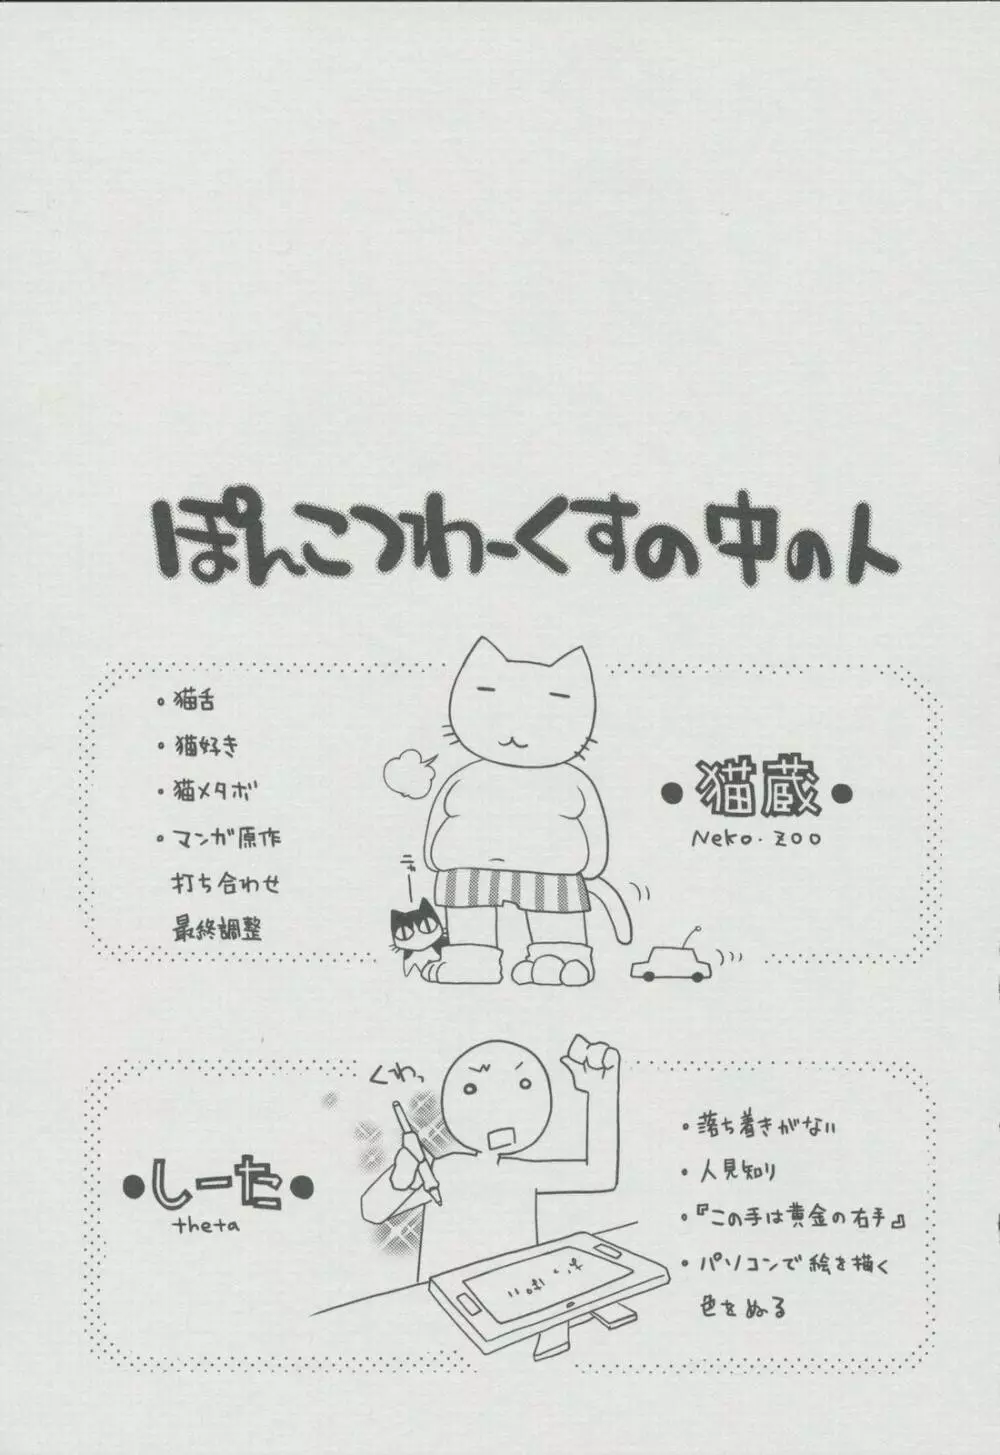 ぽんこつわーくすの中の人
・猫舌
・猫好き
・猫メタボ
・マンガ原作
打ち合わせ
最終調整
●猫蔵●
Neko・Zoo
くわっ
●しーた●
theta
・落ち着きがない
・人見知り
・『この手は黄金の右手』
・パソコンで絵を描く
色をぬる